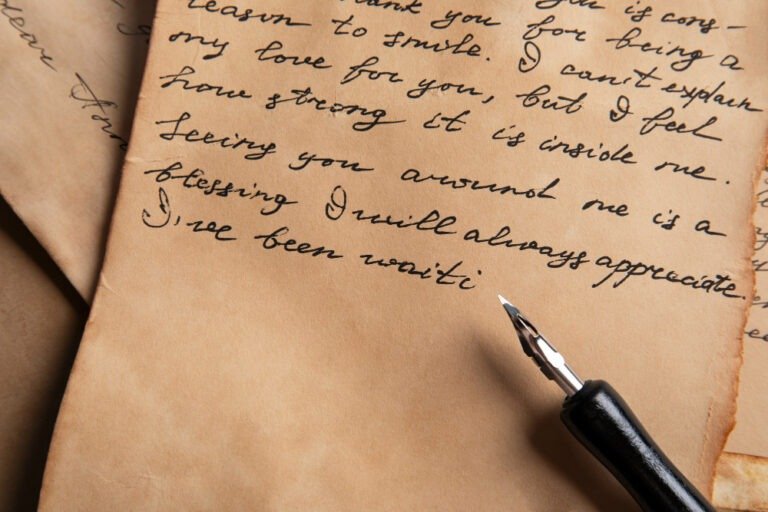 you is cons-
thank you for being a
reason to smile. I can't explain
my love for you, but I feel
how strong it is inside me.
Seeing you around me is a
blessing I will always appreciate.
I,ve been waiti
Dear Ann